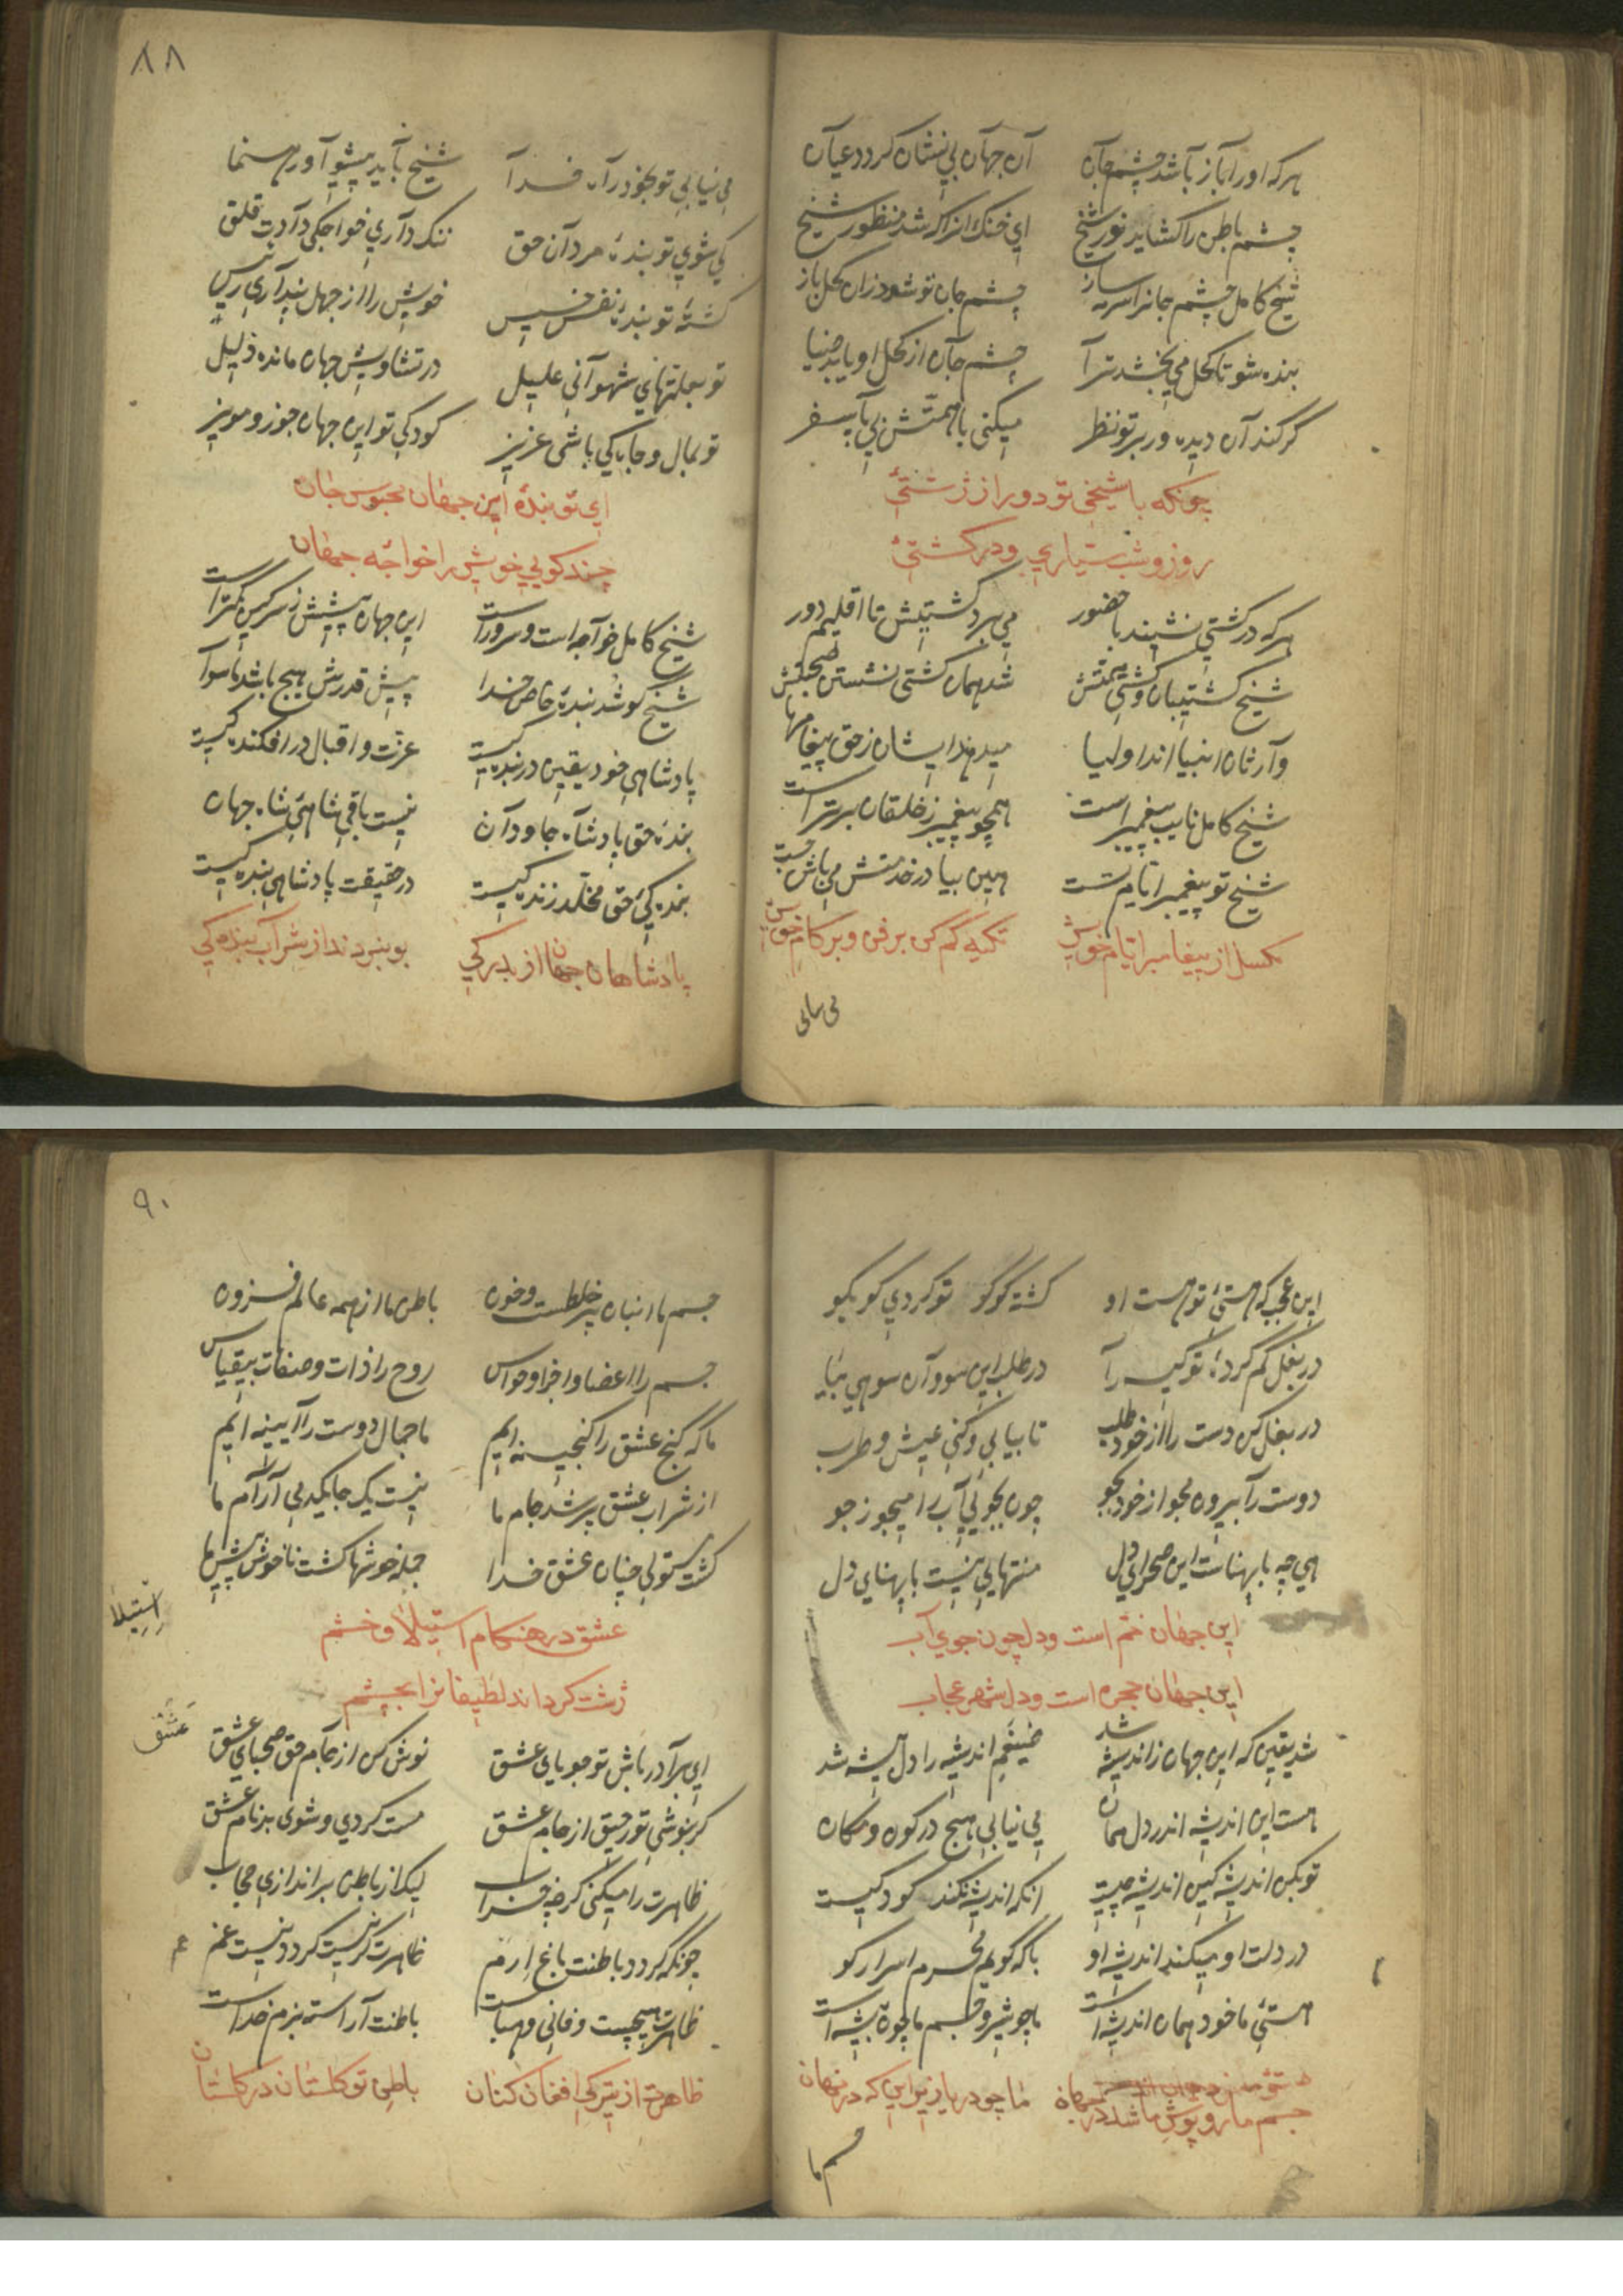 هرکه اورا باز باشد چشم جان آن جهان بی نشان کردد عیان
چشم باطن را کشاید نور شیخ ای خنک انرا که شد منظور شیخ
شیخ کامل چشم جانرا سرمه ساز چشم جان تو شود زان کحل باز
بنده شو تا کحل می بخشد ترا چشم جان از کحل او یابد ضیا
گر کند آن دیده ور بر تو نظر میکنی با همتش بی پا سفر
چونکه با شیخی تو دور از زشتئ
روز و شب سیاری و در کشتئ
هرکه در کشتی نشیند با حضور می برد کشتیش تا اقلیم دور
شیخ کشتیبان و کشتی همتش شد همان کشتی نشستن صحبتش
وارثان انبیا اند اولیا میدهند ایشان ز حق پیغامها
شیخ کامل نایب پیغمبر است همچو پیغمبر ز خلقان برتر است
شیخ تو پیغمبر ایام تست هین بیا در خدمتش می باش چست
مکسل از پیغامبر ایام خویش تکیه کم کن بر فن و بر کام خویش
می نیابی
۸۸
می نیابی تو بخود راه خدا شیخ باید پیشوا و رهنما
کی شوی تو بنده مردان حق ننک داری خواجکی دادت قلق
کشتهٔ تو بندهٔ نفس خسیس خویش را از جهل پنداری رئیس
تو بعلتهای شهوانی علیل در تشاویش جهان مانده ذلیل
تو بمال و جاه کی باشی عزیز کودکی تو این جهان جوز و مویز
ای تو بندهٔ این جهان محبوس جان
چند کویی خویش را خواجه جهان
شیخ کامل خواجه است و سرور است این جهان پیشش ز سرکین کمتر است
شیخ کو شد بندهٔ خاص خدا پیش قدرش هیچ باشد ماسوا
پادشاهی خود یقین در بندکیست عزت و اقبال در افکندکیست
بندهٔ حق پادشاه جاودان نیست باقی شاهئ شاه جهان
بنده کئ حق مخلد زنده کیست در حقیقت پادشاهی بنده کیست
پادشاهان جهان از بدرکی بو نبردند از شراب بنده کی
این عجب که هستئ تو هست او کشته کوکو تو کردی کو بکو
در بغل کم کردهٔ تو کیسه را در طلب این سو و آن سو هی میا
در بغل کن دست را از خود طلب تا بیابی و کنی عیش و طرب
دوست را بیرون مجو از خود بجو چون بجویی آب را میجو ز جو
هی چه با پهناست این صحرای دل منتهایی نیست با پهنای دل
این جهان خم است و دل چون جوی آب
این جهان حجره است و دل شهر عجاب
شد یقین که این جهان ز اندیشه شد ضیغم اندیشه را دل بیشه شد
هست این اندیشه اندر دل همان پی نیابی هیچ در کون و مکان
تو بکن اندیشه کین اندیشه چیست انکه اندیشه کند کو کیست
در دلت او میکند اندیشه او با که کویم محرم اسرار کو
هستئ ما خود همان اندیشه است ما چو شیر و جسم ما چون بیشه است
جسم ما روپوش ما شد در جهان ما چو دریا زیر این که در نهان
جسم ما
۹۰
جسم ما انبان پر خلطست و خون باطن ما از همه عالم فزون
جسم را اعضا و اجزا و حواس روح را ذات و صفات بیقیاس
ما که کنج عشق را کنجینه ایم ما جمال دوست را آیینه ایم
از شراب عشق پر شد جام ما نیست یک جا یکدمی آرام ما
کشت مستولی چنان عشق خدا جمله خوشها کشت ناخوش پیش ما
عشق در هنکام استیلا و خشم
زشت کرداند لطیفانرا بچشم
استیلا
ای برادر باش تو جویای عشق نوش کن از جام حق صهبای عشق
عشق
کر بنوشی تو رحیق از جام عشق مست کردی و شوی بدنام عشق
ظاهرت را میکنی کرچه خراب لیک از باطن براندازی حجاب
چونکه کردد باطنت باغ ارم ظاهرت کر نیست کردد نیست غم
ظاهرت هیچست و فانی و هباست باطنت آراسته بزم خداست
ظاهرت از ترکی افغان کنان باطن تو کلستان در کلستان